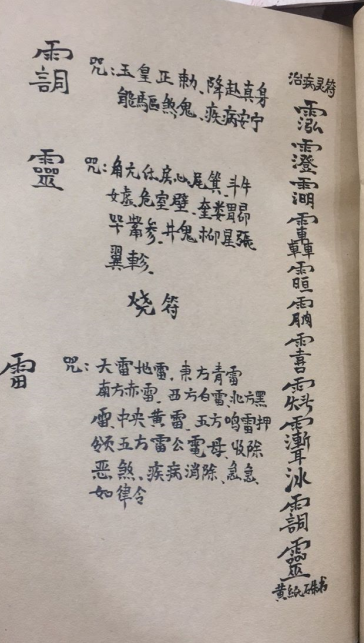 治病灵符
黄纸硃书
咒:玉皇正勅、降赴真身
能驅煞鬼、疾病安宁
靈
咒:角亢氐房心尾箕斗牛
女虚危室壁、奎娄胃昴
毕觜参、井鬼柳星張
翼轸、
烧符
雷
咒:天雷地雷、東方青雷
南方赤雷、西方白雷、北方黑
雷、中央黄雷、五方鸣雷押
领五方雷公電母、收除
恶煞、疾病消除、急急
如律令